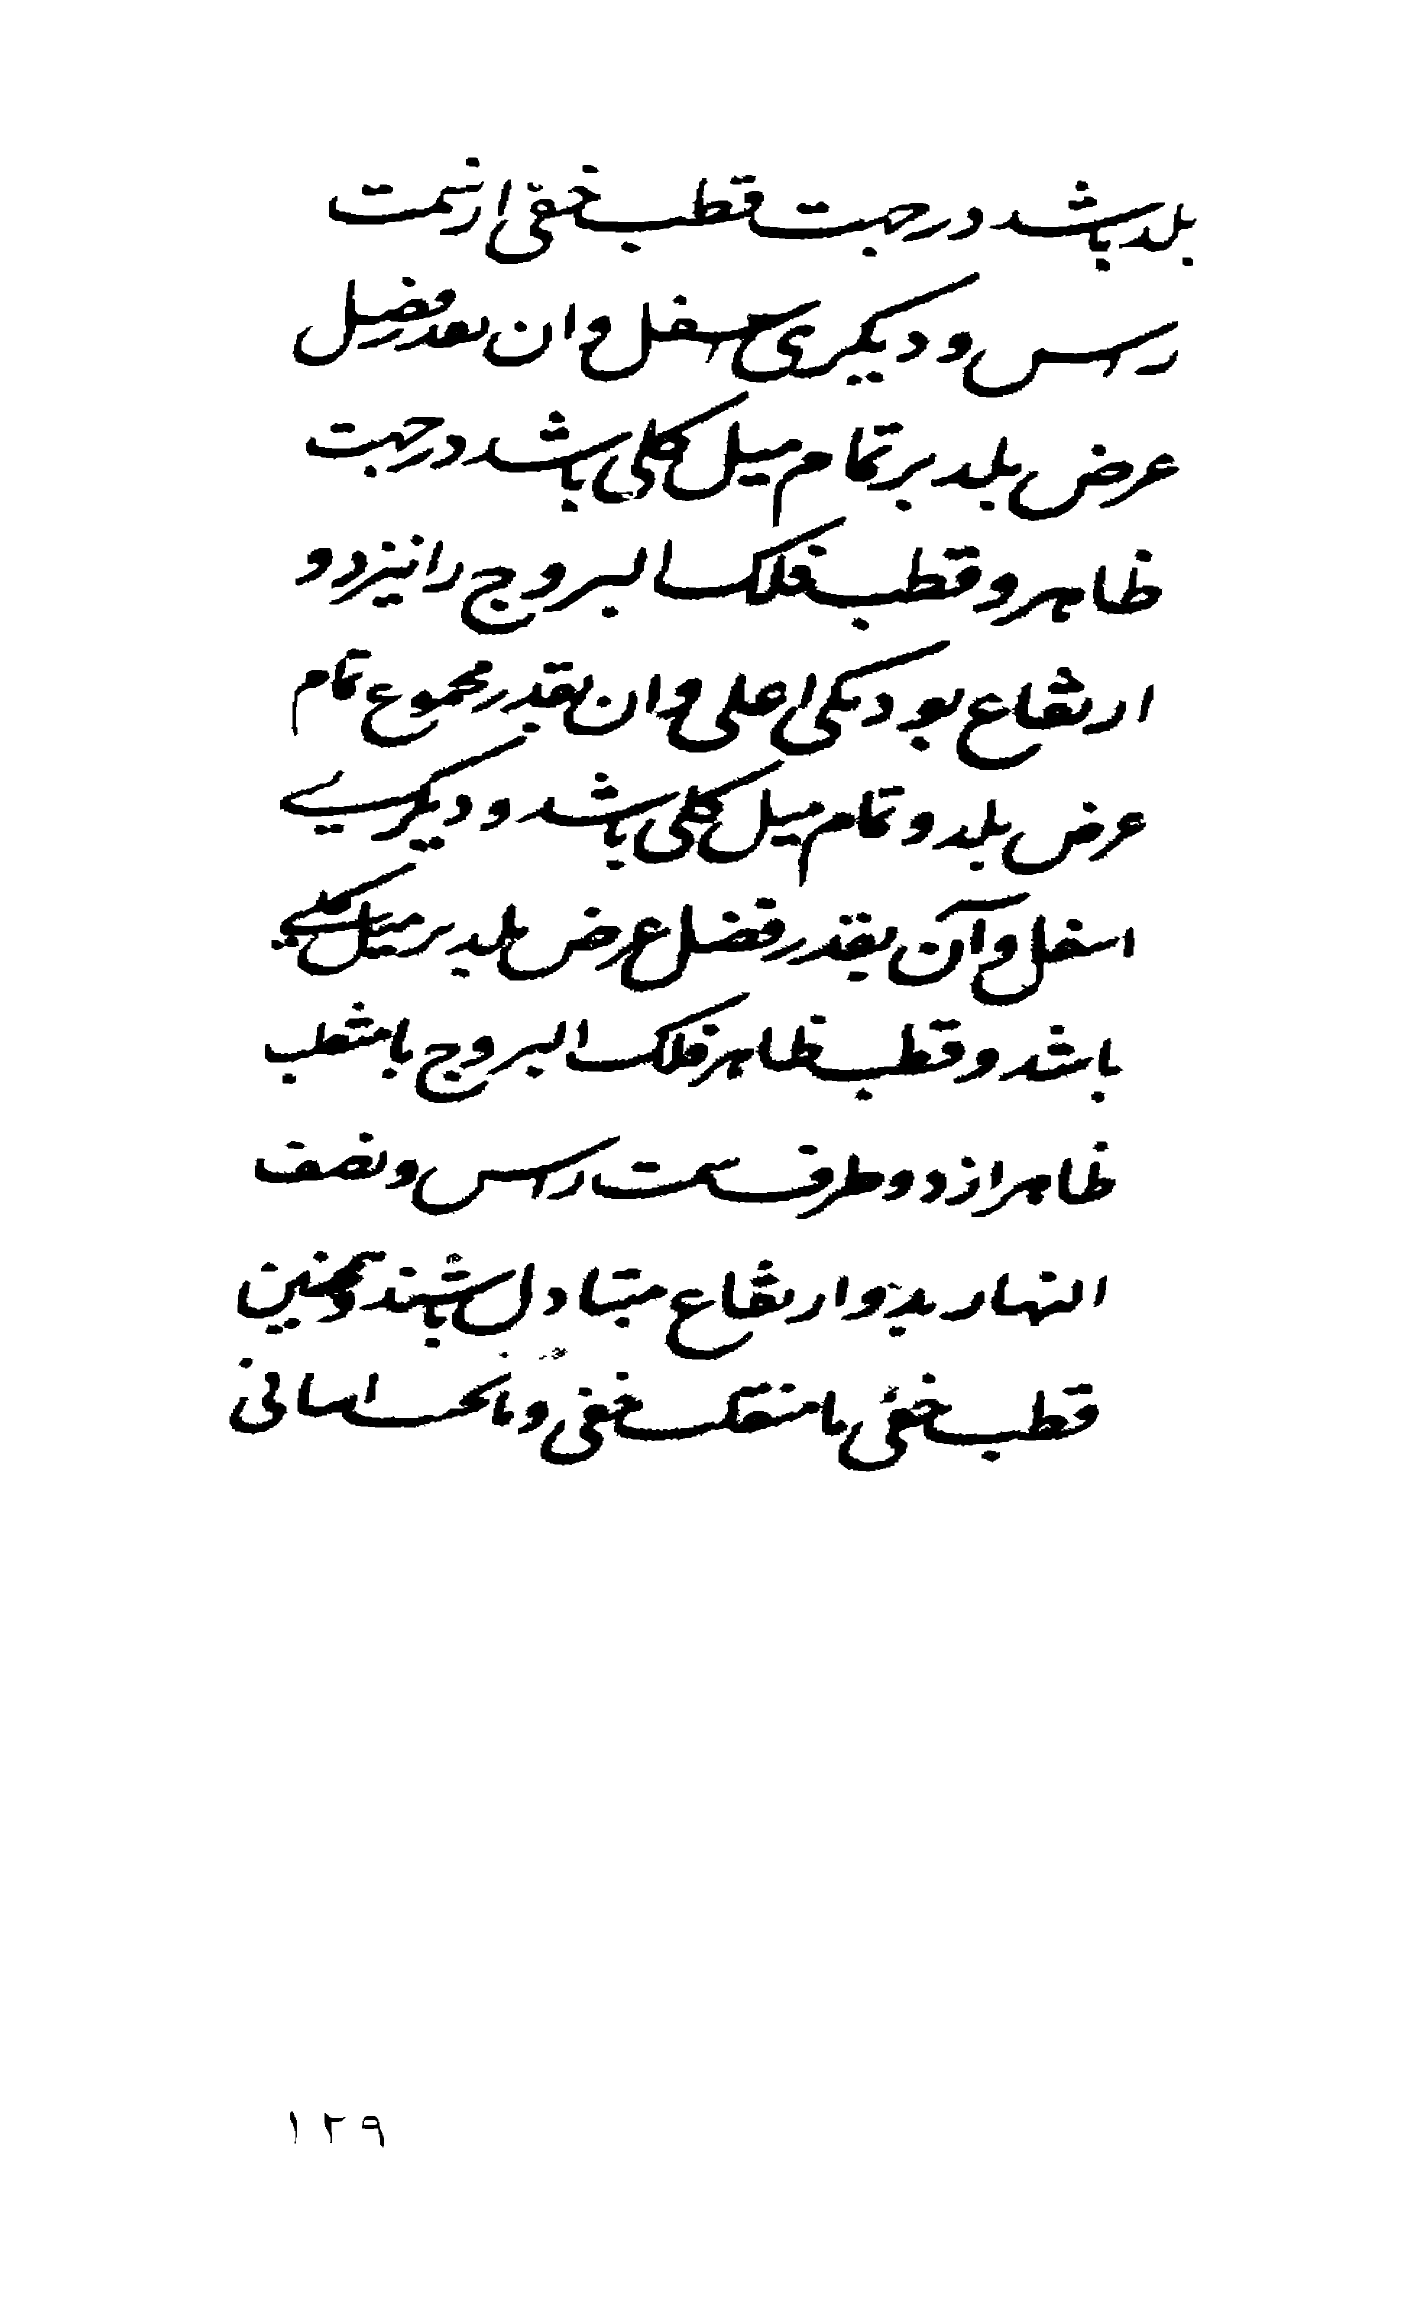 بلد باشد در جهت قطب خفی از سمت
راس و دیکری اسفل و ان بقدر فضل
عرض بلد بر تمام میل کلی باشد در جهت
ظاهر و قطب فلک البروج را نیز دو
ارتفاع بود یکی اعلی و ان بقدر مجموع تمام
عرض بلد و تمام میل کلی باشد و دیکری
اسفل و آن بقدر فضل عرض بلد بر میل کلی
باشد و قطب ظاهر فلک البروج با منقلب
ظاهر از دو طرف سمت راس و نصف
النهار بدو ارتفاع متبادل باشند و همچنین
قطب خفی با منقلب خفی و
١٢٩